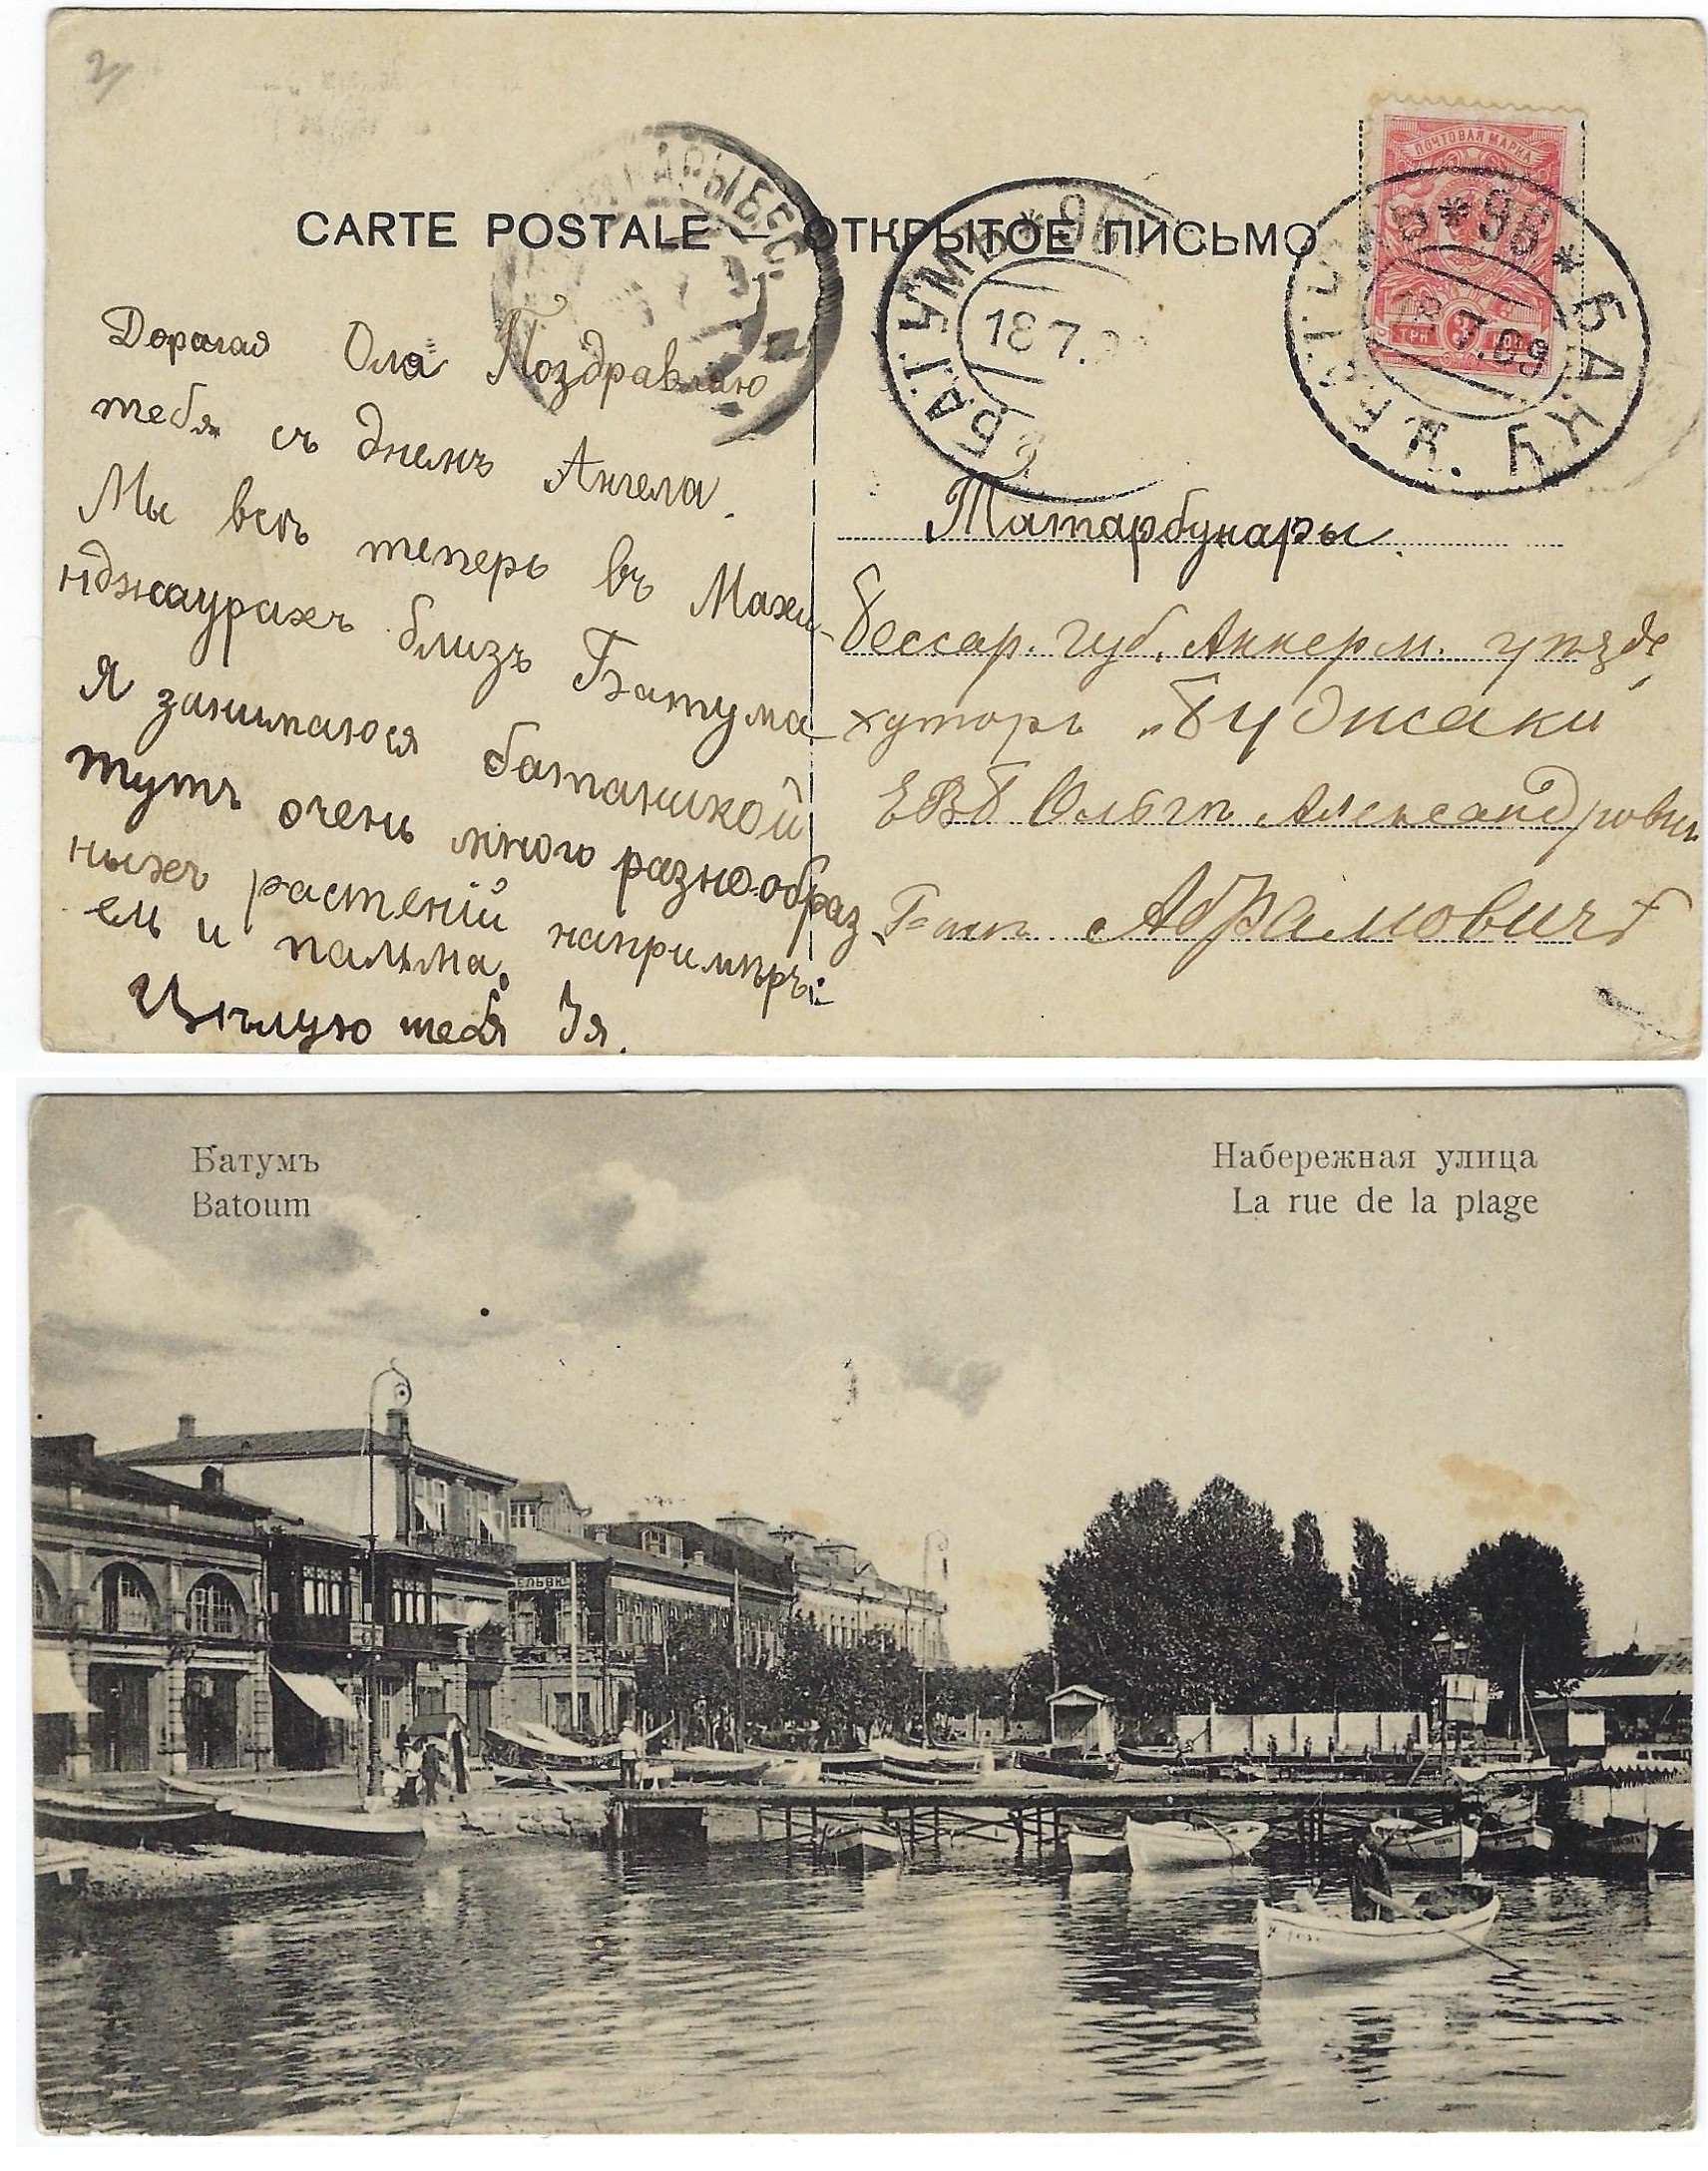 CARTE POSTALE — ОТКРЫТОЕ ПИСЬМО
ПОЧТОВАЯ МАРКА
ТРИ 3 КОП.
БАТУМЪ * 96 * БАКУ
18 7.09
БАТУМЪ * 96
18 7.
Дорогая Оля Поздравляю
тебя съ днемъ Ангела.
Мы всѣ теперь въ Махи-
нджаурахъ близъ Батума
Я занимаюся ботаникой
тутъ очень много разнообраз
ныхъ растеній напримѣръ:
ель и пальма.
Цѣлую тебя Ія.
Татарбунары.
Бессар. губ. Аккерм. уѣзд
хуторъ „Буджаки
ЕВБ Ольгѣ Александровнѣ
Абрамовичъ
Батумъ
Batoum
Набережная улица
La rue de la plage